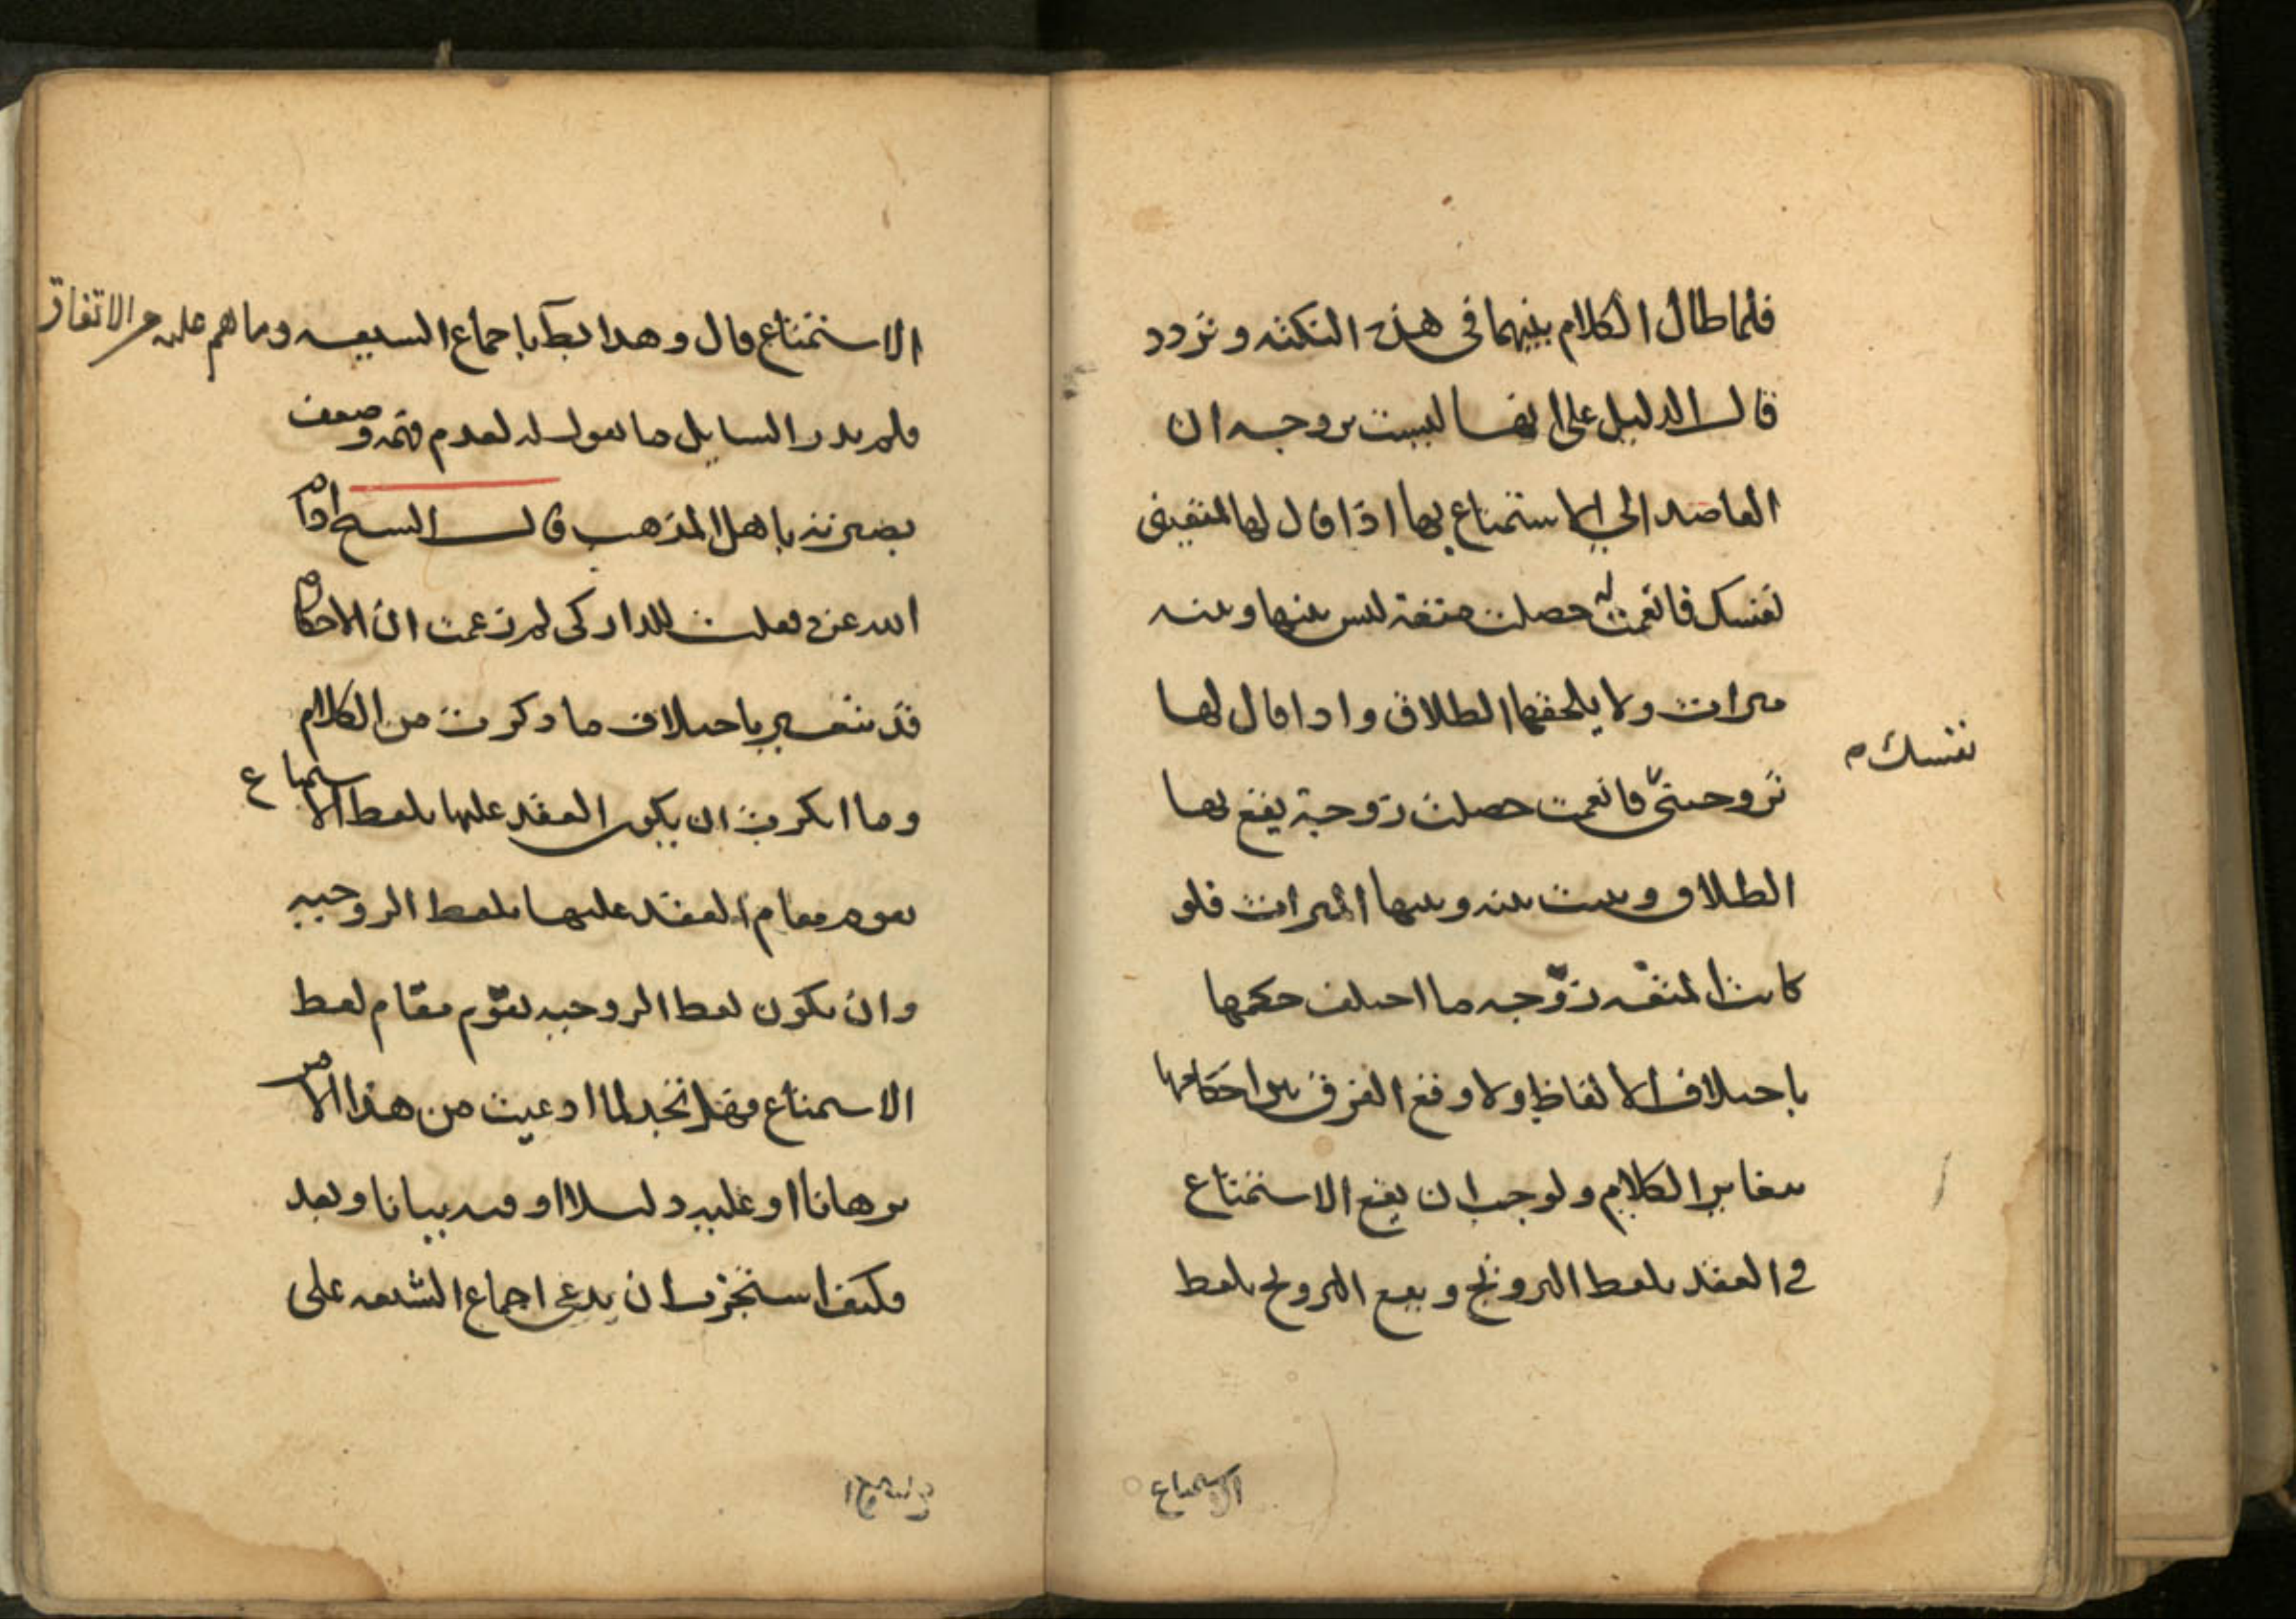 فلما طال الكلام بينهما في هذه النكتة وتردد
قال الدليل على انها ليست بزوجه ان
القاصد الى الاستمتاع بها اذا قال لها امتعيني
نفسك فانعمت له حصلت متعة ليس بينها وبينه
ميراث ولا يلحقها الطلاق واذا قال لها
زوجيني فانعمت حصلت زوجية يقع بها
نفسك
الطلاق ويثبت بينه وبينها الميراث فلو
كانت المتعه زوجه ما اختلف حكمها
باختلاف الالفاظ ولا وقع الفرق بين احكامها
بتغاير الكلام ولوجب ان يقع الاستمتاع
في العقد بلفظ التزويج ويقع التزويج بلفظ
الاستمتاع
الاستمتاع قال وهذا بط باجماع الشيعه وما هم عليه من الاتفاق
فلم يدر السايل ما يقول له لعدم فقهه وضعف
بصيرته باهل المذهب قال الشيخ ادام
الله عزه فقلت للداركي لم زعمت ان الاحكام
قد تتغير باختلاف ما ذكرت من الكلام
وما انكرت ان يكون العقد عليها بلفظ الاستمتاع
يقوم مقام العقد عليها بلفظ الزوجيه
وان يكون لفظ الزوجيه يقوم مقام لفظ
الاستمتاع فهل تجد لما ادعيت من هذا الامر
برهانا او عليه دليلا او فيه بيانا وبعد
فكيف استجزت ان تدعي اجماع الشيعه على